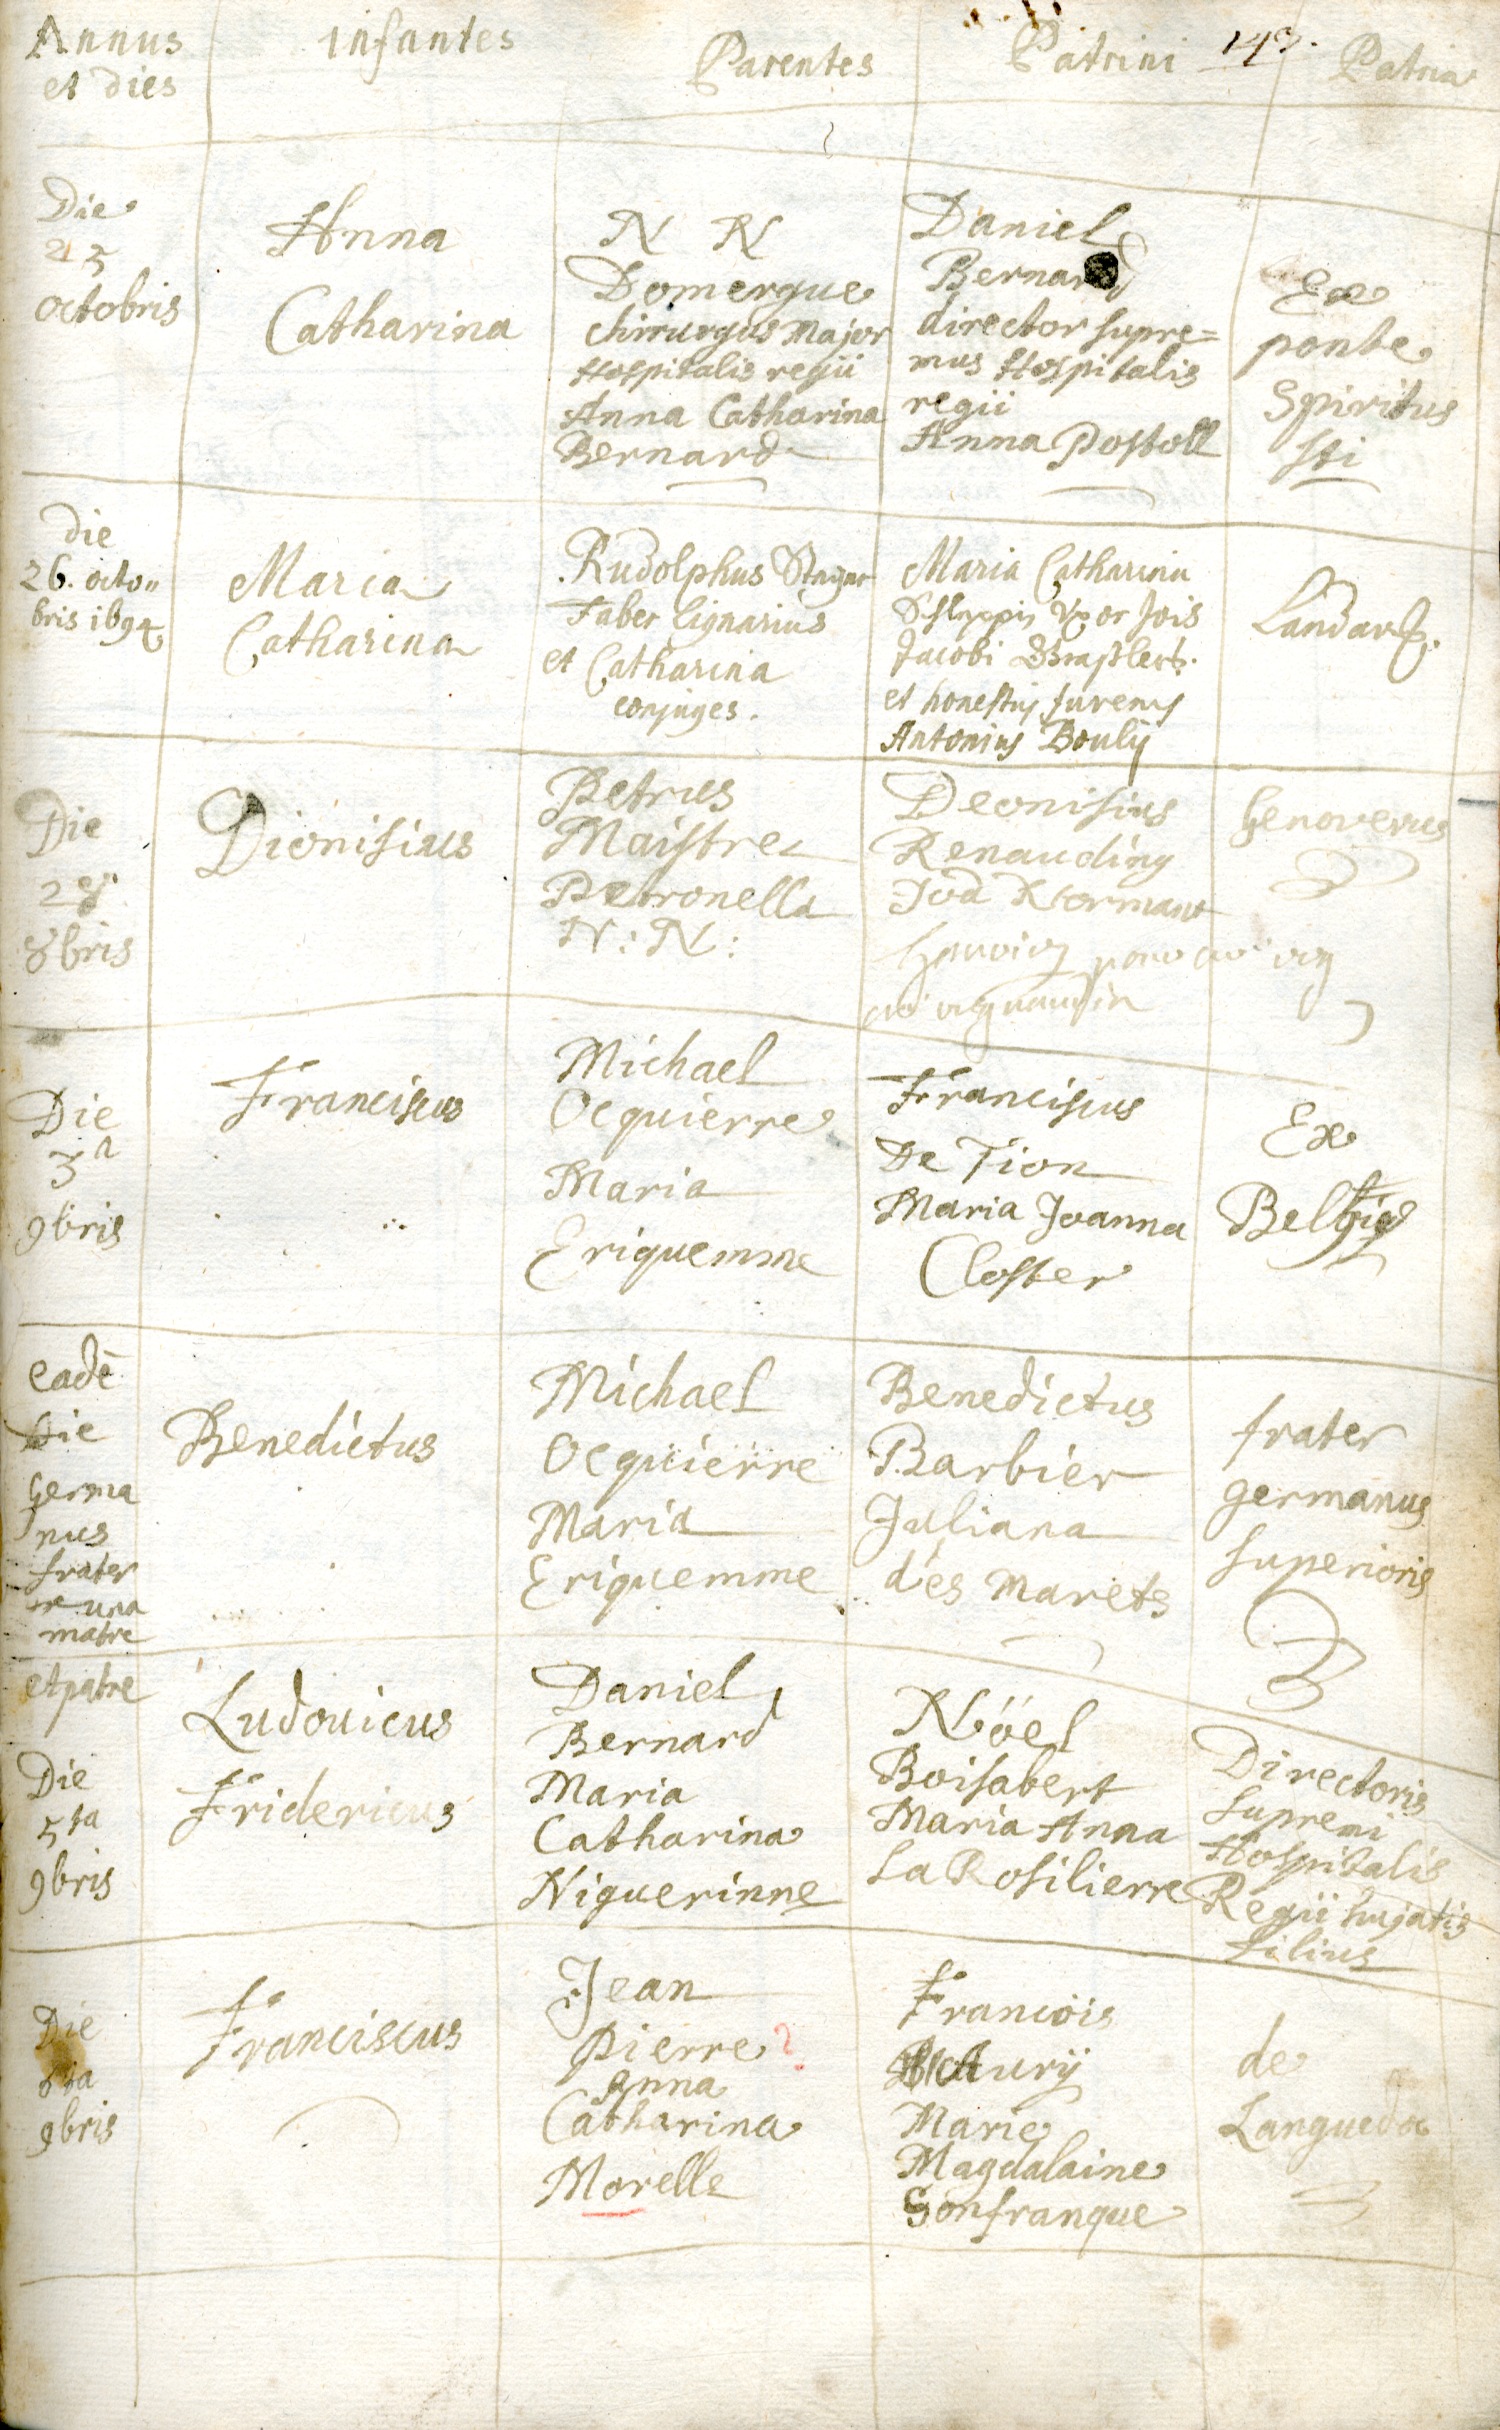 Annus
et dies
infantes
Parentes
Patrini
143.
Patria
Die
25
octobris
Anna
Catharina
N N
Domergue
chirurgus Major
Hospitalis regii
Anna Catharina
Bernard
Daniel
Bernard
director supre=
mus Hospitalis
regii
Anna Postoll
Ex
ponte
Spiritus
Sti
Die
26. octo„
bris 1694
Maria
Catharina
Rudolphus
Faber lignarius
et Catharina
conjuges.
Maria Catharina
Uxor Jois
Jacobi
et honestus Juvenis
Antonius Boulÿ
Die
28
8bris
Dionisius
Petrus
Maistre
Petronella
N: N:
Deonisius
Renauding
Genovevus
Die
3a
9bris
Franciscus
Michael
Ocquierre
Maria
Eriquemme
Franciscus
De Tion
Maria Joanna
Closter
Ex
Belgio
eadē
Die
Germa
nus
frater
ex una
matre
et patre
Benedictus
Michael
Ocquierre
Maria
Eriquemme
Benedictus
Barbier
Juliana
des Marets
frater
germanus
superioris
Die
5ta
9bris
Ludovicus
Fridericus
Daniel
Bernard
Maria
Catharina
Niguerinne
Nöel
Boisabert
Maria Anna
La Rosilierre
Directoris
Supremi
Hospitalis
Regii hujatis
filius
Die
6ta
9bris
Franciscus
Jean
Pierre ?
Anna
Catharina
Morelle
Francois
Marie
Magdalaine
Gonfranque
de
Languedoc